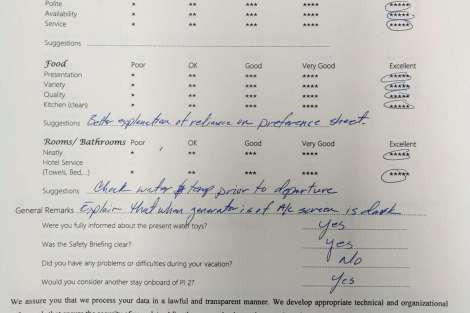 Polite * ** *** **** *****
Availability * ** *** **** *****
Service * ** *** **** *****
Suggestions
Food Poor OK Good Very Good Excellent
Presentation * ** *** **** *****
Variety * ** *** **** *****
Quality * ** *** **** *****
Kitchen (clean) * ** *** **** *****
Suggestions Better explanation of reliance on preference sheet.
Rooms/ Bathrooms Poor OK Good Very Good Excellent
Neatly * ** *** **** *****
Hotel Service
(Towels, Bed,...) * ** *** **** *****
Suggestions Check water temp prior to departure
General Remarks Explain that when generator is of A/c screen is dark
Were you fully informed about the present water toys? yes
Was the Safety Briefing clear? yes
Did you have any problems or difficulties during your vacation? No
Would you consider another stay onboard of PI 2? Yes
We assure you that we process your data in a lawful and transparent manner. We develop appropriate technical and organizational